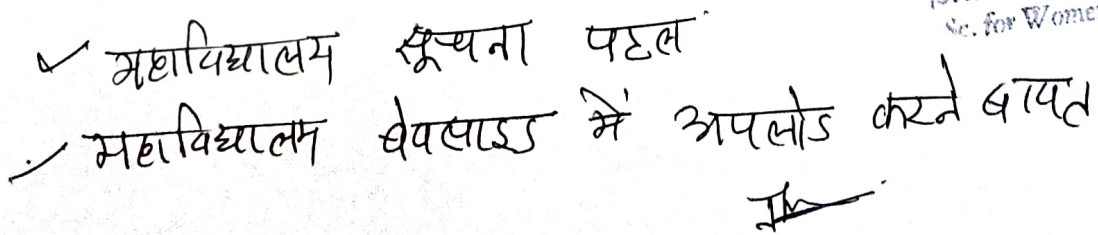 Sc. for Women
महाविद्यालय सूचना पटल
महाविद्यालय वेबसाइड में अपलोड करने बाबत